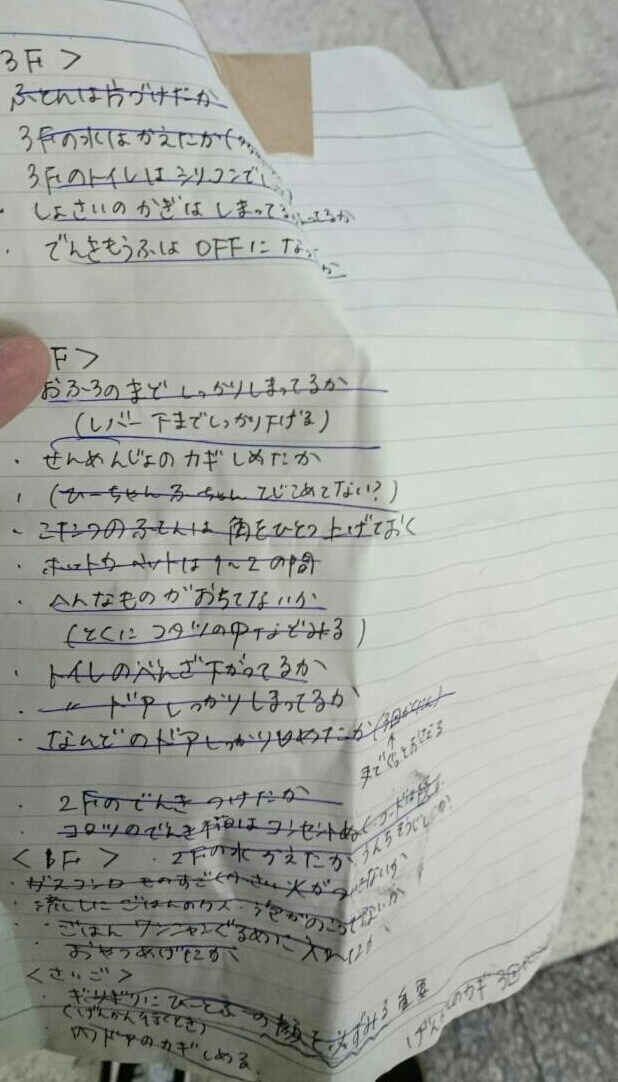 3F>
ふとんは片づけたか
3Fの水はかえたか(
3Fのトイレはシリコンで
・しょさいのかぎはしまってるか
・でんきもうふはOFFになっ か
F>
おふろのまどしっかりしまってるか
(レバー下までしっかり下げる)
・せんめんじょのカギしめたか
(ひーちゃんふーちゃんとじこめてない?)
・のふとんは角をひとつ上げておく
・ホットカーペットは1~2の間
・へんなものがおちてないか
(とくにコタツの中などみる)
・トイレのべんざ下がってるか
・〃ドアしっかりしまってるか
・なんどのドアしっかりしめたか(3回かくにん)
↑
までぐっとおさえる
・2Fのでんきつけたか
・コタツのでんき コンセントぬく
うんちそうじしたか
<1F>・2Fの水かえたか
・ガスコンロものすごく小さい火がついてないか
・流しにごはんのカス・泡がのこってないか
・ごはんワンニャンぐるめに入れたか
・おやつあげたか
<さいご>
・ギリギリにひーとふーの顔を必ずみる 重要
(げんかんをはくとき)
・ドアのカギしめる
げんかんのカギ3回